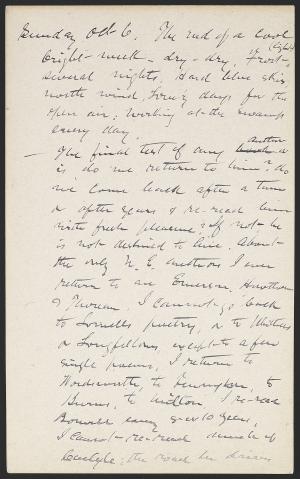 Sunday Oct 6. The end of a cool
bright week - dry - dry. Frost (light)
several nights. Hard blue skies,
north wind, lovely days for the
open air; working at the swamp
every day.
— The final test of any author
is, do we return to him? do
we come back after a time
or after years & re-read him
with fresh pleasure? If not he
is not destined to live. About
the only N. E. authors I ever
return to are Emerson, Hawthorn
& Thoreau. I cannot go back
to Lowells poetry, or to Whittiers
or Longfellows, except to a few
single poems. I return to
Wordsworth, to Tennyson, to
Burns, to Milton. I re-read
Boswell every 8 or 10 years,
I cannot re-read much of
Carlyle; the road he drives